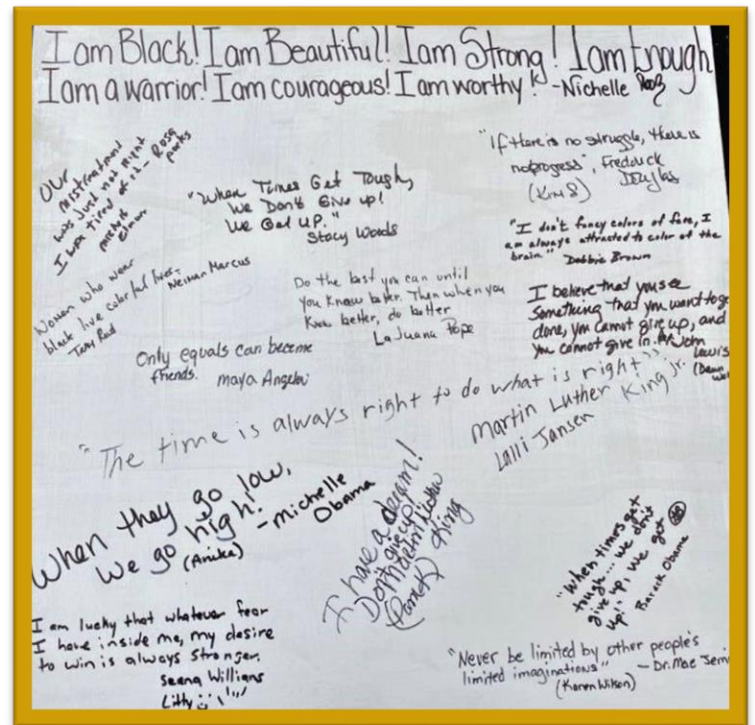 I am Black! I am Beautiful! I am Strong! I am Enough
I am a warrior! I am courageous! I am worthy! -Nichelle
Our
mistreatment
was just not right
I was tired of it - Rosa
parks
"When Times Get Tough,
We Don't Give up!
We Get UP."
Stacy Woods
"If there is no struggle, there is
no progress", Fredrick
Douglas
(Kim S)
"I don't fancy colors of face, I
am always attracted to color of the
brain" Debbie Brown
Women who wear
black live colorful lives-
Neiman Marcus
Do the best you can until
you know better. Then when you
Know better, do better
LaJuana Pope
I believe that you see
Something that you want to ge
done, you cannot give up, and
you cannot give in. John
Lewis
(Dawn
Only equals can become
friends. maya Angelou
"The time is always right to do what is right"
Martin Luther King jr.
Lalli Jansen
When they go low,
we go high!
-michelle
Obama
(Anika)
I have a dream!
Don't give up
King
"When times get
tough... we don't
give up, we get
up!"
Barack Obama
I am lucky that whatever fear
I have inside me, my desire
to win is always stronger.
Serena Willians
Litty
"Never be limited by other people's
limited imaginations" - Dr. Mae Jemi
(Karen Wilson)